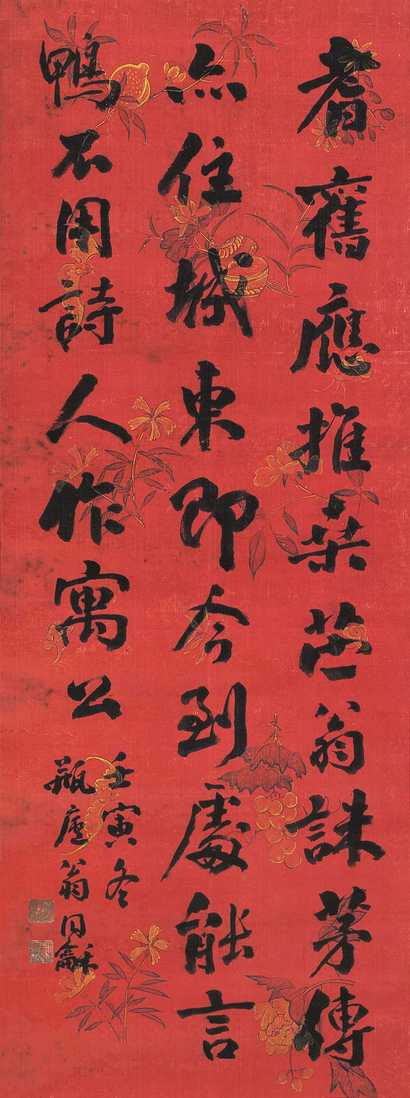 耆舊應推桑苧翁誅茅傳
亦住城東即今到處能言
鴨不用詩人作寓公
壬寅冬
瓶廬翁同龢